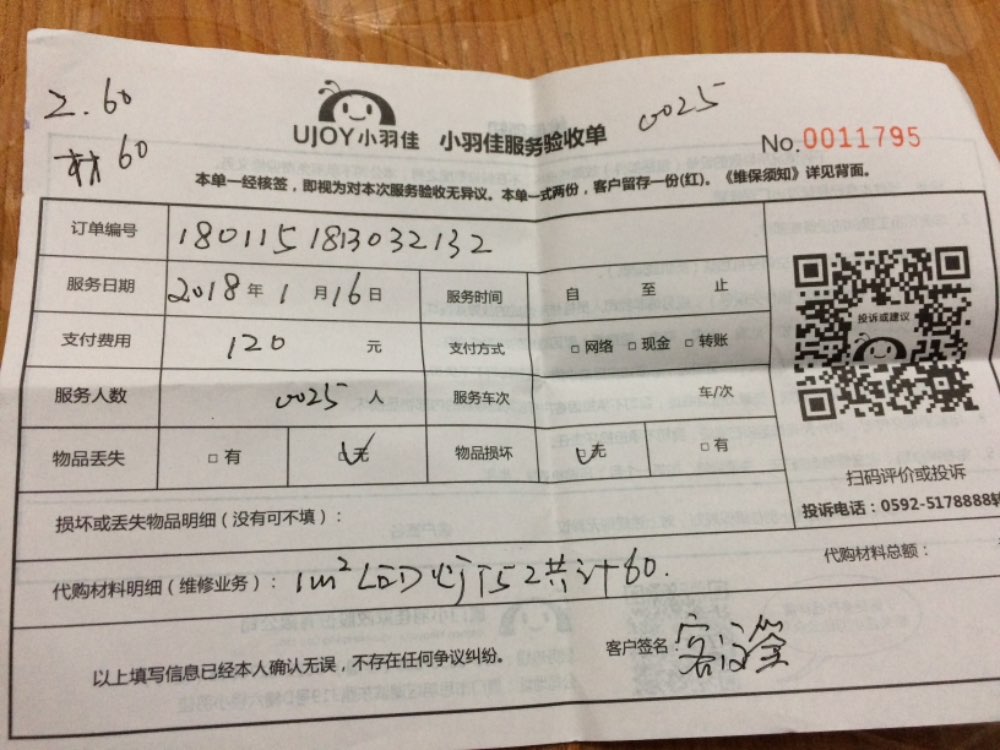 工.60
材60
0025
UJOY小羽佳 小羽佳服务验收单
No.0011795
本单一经核签，即视为对本次服务验收无异议。本单一式两份，客户留存一份(红)。《维保须知》详见背面。
订单编号 1801151813032132
服务日期 2018年1月16日 服务时间 自 至 止
支付费用 120 元 支付方式 □网络 □现金 □转账
投诉或建议
服务人数 0025人 服务车次 车/次
物品丢失 □有 ☑无 物品损坏 ☑无 □有
扫码评价或投诉
投诉电话：0592-5178888转
损坏或丢失物品明细（没有可不填）：
代购材料明细（维修业务）：1m²LED灯T5 2共计60.
代购材料总额：
以上填写信息已经本人确认无误，不存在任何争议纠纷。
客户签名：